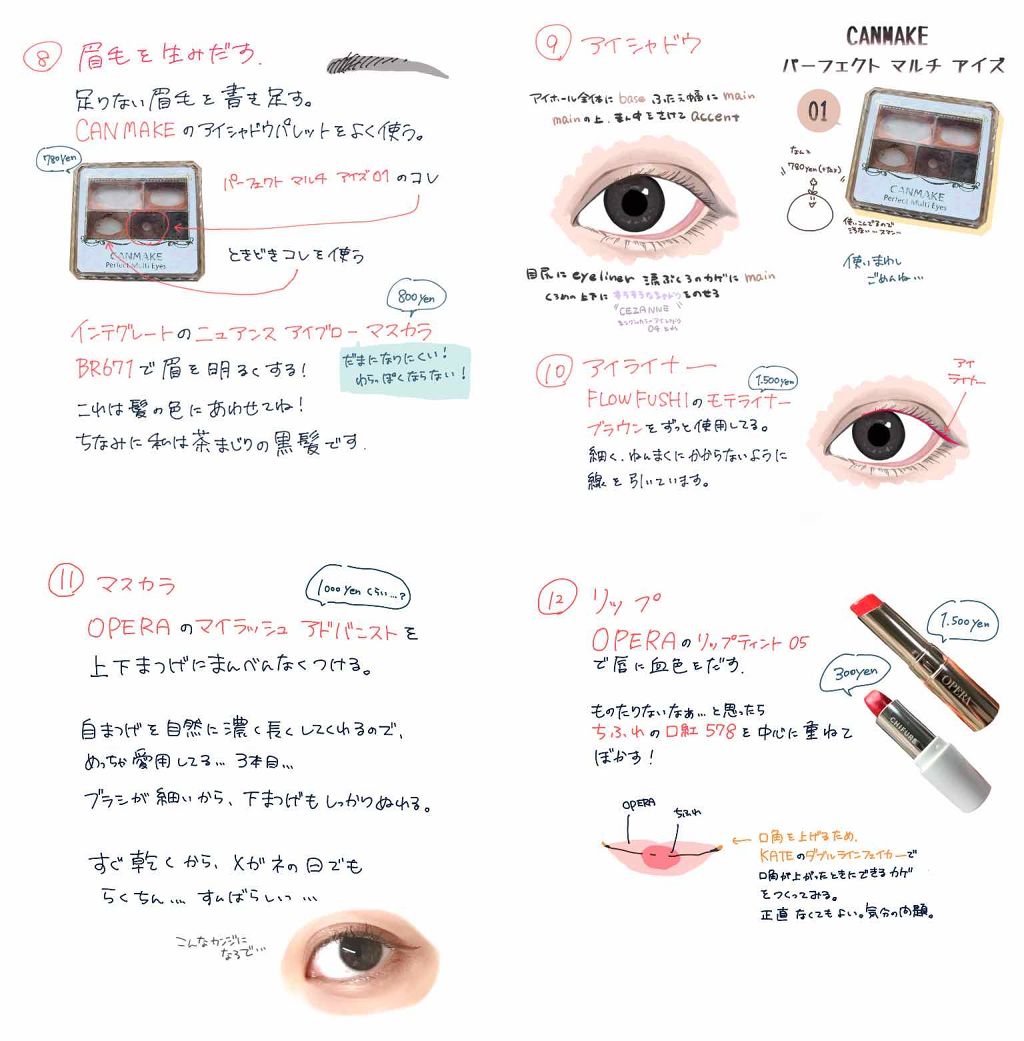 ⑧ 眉毛を生みだす.
足りない眉毛を書き足す。
CANMAKEのアイシャドウパレットをよく使う。
780yen
パーフェクト マルチ アイズ01 のコレ
ときどきコレを使う
CANMAKE
Perfect Multi Eyes
800yen
インテグレートのニュアンス アイブロー マスカラ
BR671で眉を明るくする!
だまになりにくい!
わらっぽくならない!
これは髪の色にあわせてね!
ちなみに私は茶まじりの黒髪です.
⑨ アイシャドウ
アイホール全体に base ふたえ幅に main
mainの上、まん中をさけて accent
目尻に eyeliner 涙ぶくろのカゲに main
くろめの上下に キラキラなシャドウをのせる
"CEZANNE"
CANMAKE
パーフェクト マルチ アイズ
01
なんと
780yen(+tax)
CANMAKE
Perfect Multi Eyes
使いまわし
ごめんね…
⑩ アイライナー
1.500yen
FLOWFUSHIのモテライナー
ブラウンをずっと使用してる。
細く、ねんまくにかからないように
線を引いています。
アイ
ライナー
⑪ マスカラ
1000yenくらい…?
OPERAのマイラッシュ アドバニストを
上下まつげにまんべんなくつける。
自まつげを自然に濃く長くしてくれるので、
めっちゃ愛用してる… 3本目…
ブラシが細いから、下まつげもしっかりぬれる。
すぐ乾くから、メガネの日でも
らくちん… すんばらしいっ…
こんなカンジに
なるで…
⑫ リップ
OPERAのリップティント 05
で唇に血色をだす.
1.500yen
300yen
OPERA
CHIFURE
ものたりないなぁ…と思ったら
ちふれの口紅 578を中心に重ねて
ぼかす!
OPERA
ちふれ
← 口角を上げるため、
KATEのダブルラインフェイカーで
口角が上がったときにできるカゲ
をつくってみる。
正直なくてもよい。気分の問題。